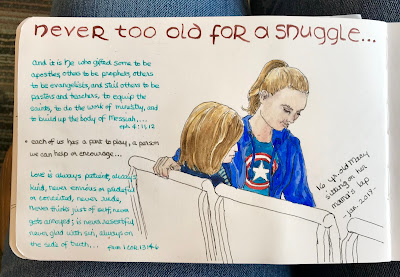 never too old for a snuggle...
And it is He who gifted some to be
apostles, others to be prophets, others
to be evangelists, and still others to be
pastors and teachers, to equip the
saints, to do the work of ministry, and
to build up the body of Messiah,...
eph. 4:11,12
• each of us has a part to play, a person
we can help or encourage...
Love is always patient, always
kind, never envious or prideful
or conceited, never rude,
never thinks just of self, never
gets annoyed; is never resentful,
never glad with sin, always on
the side of truth,...
from 1 COR 13:4-6
yr.-old Missy
sitting on her
mama's lap
- jan. 2017 -